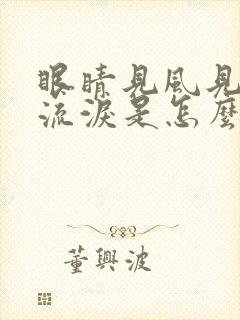 眼睛見風見
流淚是怎麼
董興波